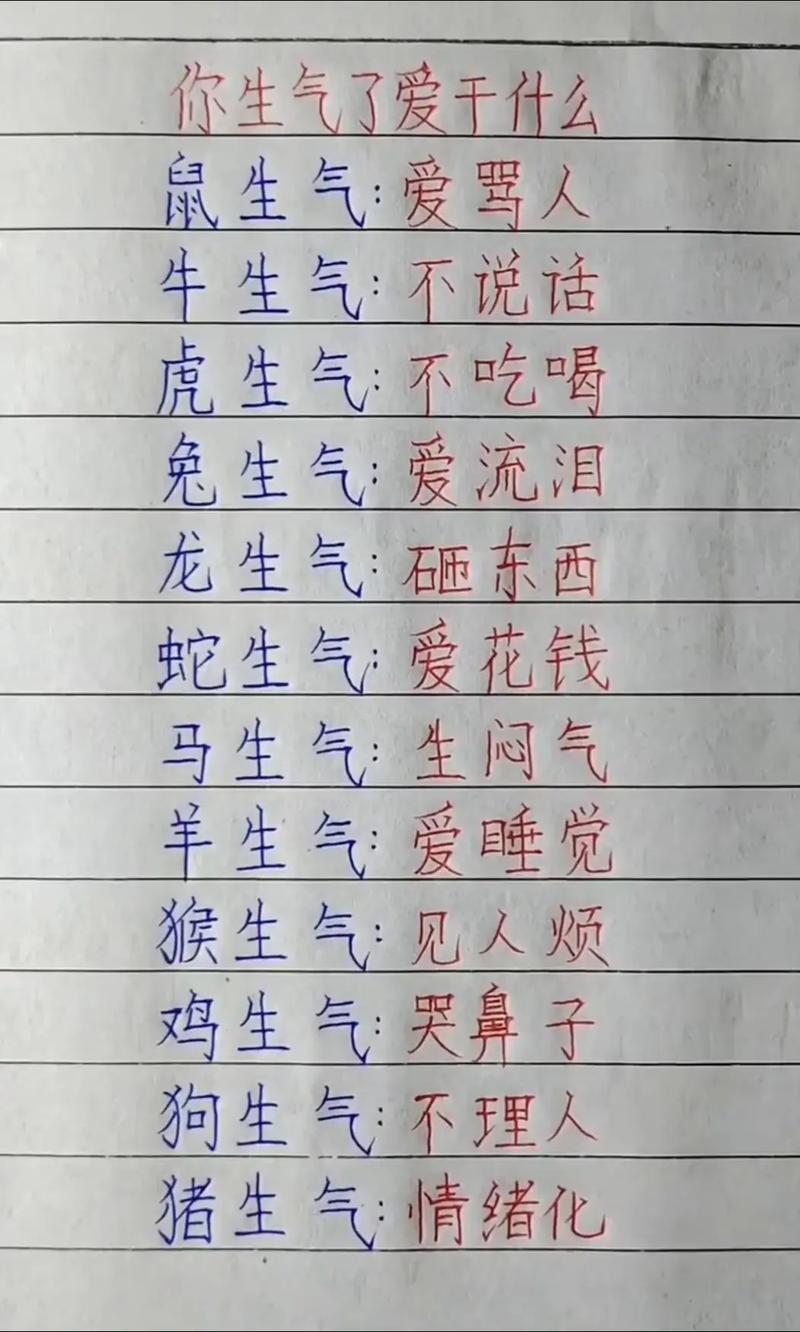 你生气了爱干什么
鼠生气:爱骂人
牛生气:不说话
虎生气:不吃喝
兔生气:爱流泪
龙生气:砸东西
蛇生气:爱花钱
马生气:生闷气
羊生气:爱睡觉
猴生气:见人烦
鸡生气:哭鼻子
狗生气:不理人
猪生气:情绪化